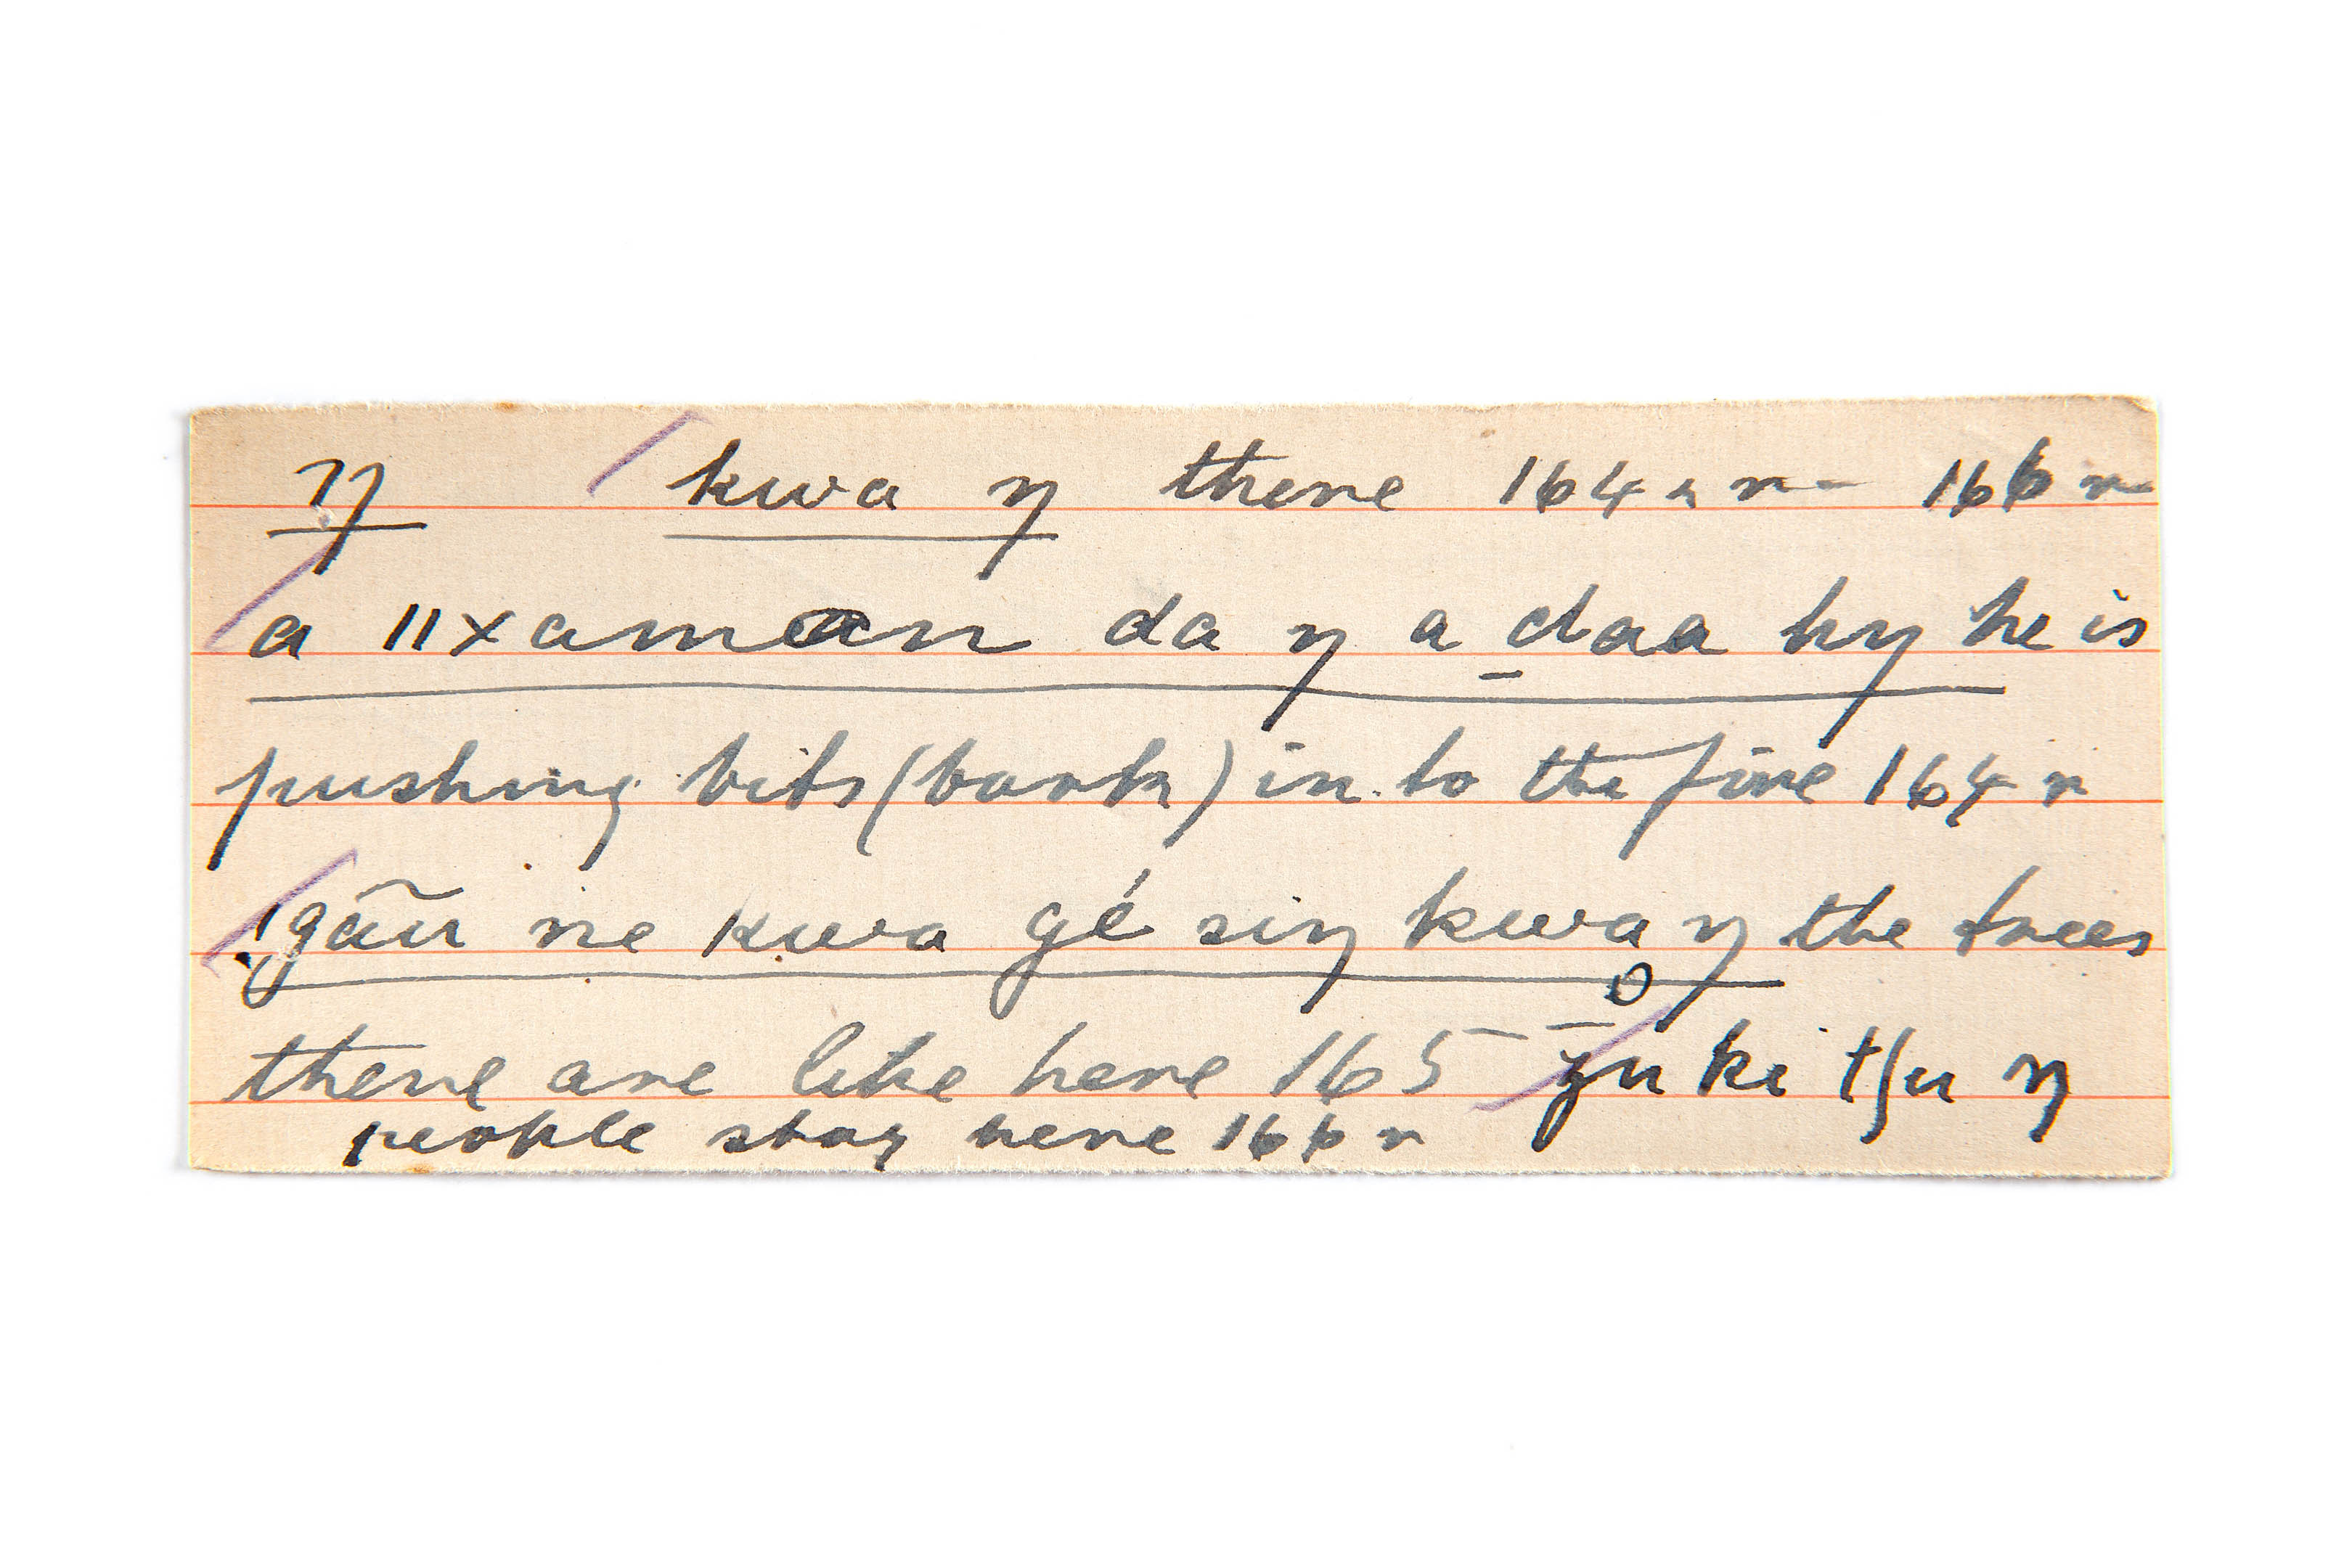 ŋ kwa ŋ there 164 r - 166 r
a ǁxaman da ŋ a daa hŋ he is
pushing bits (bark) in to the fire 164 r
!gãu ne kwa gé siŋ kwa ŋ the trees
there are like here 165 — ʒu ki tʃu ŋ
people stay here 166 r